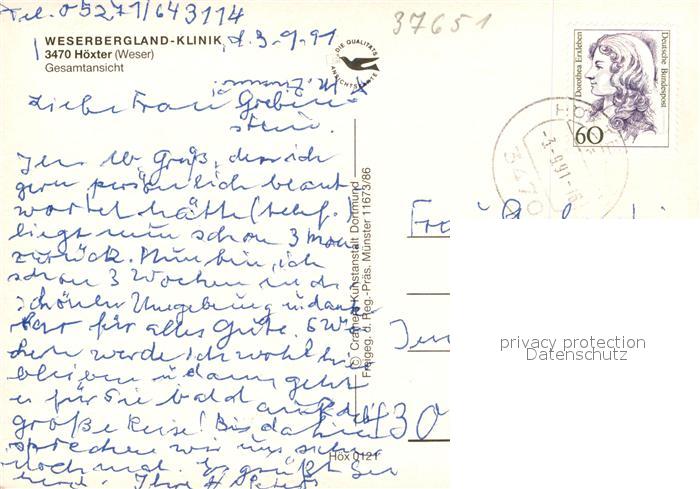 Tel. 05271/643114
37651
WESERBERGLAND-KLINIK, d. 3.9.91
3470 Höxter (Weser)
Gesamtansicht
DIE QUALITÄTS
ANSICHTSKARTE
Dorothea Erxleben
Deutsche Bundespost
60
Liebe Frau Greben-
stein.
Ihr lb. Gruß, den ich
gern persönlich beant-
wortet hätte (telef.)
liegt nun schon 3 Mon.
zurück. Nun bin ich
schon 3 Wochen in d.
schönen Umgebung u. dank-
bar für alles Gute. 6 Wo-
chen werde ich wohl hier
bleiben u. dann geht
es für Sie bald auf d.
große Reise! Bis dahin
sprechen wir uns sicher
noch mal. Es grüßt Sie
herzl. Ihre H.
© Cramers Kunstanstalt Dortmund
Freigeg. d. Reg.-Präs. Münster 11673/86
Höx 0121
HÖXTER
-3.-9.91.-16
3470
Frau
430
privacy protection
Datenschutz